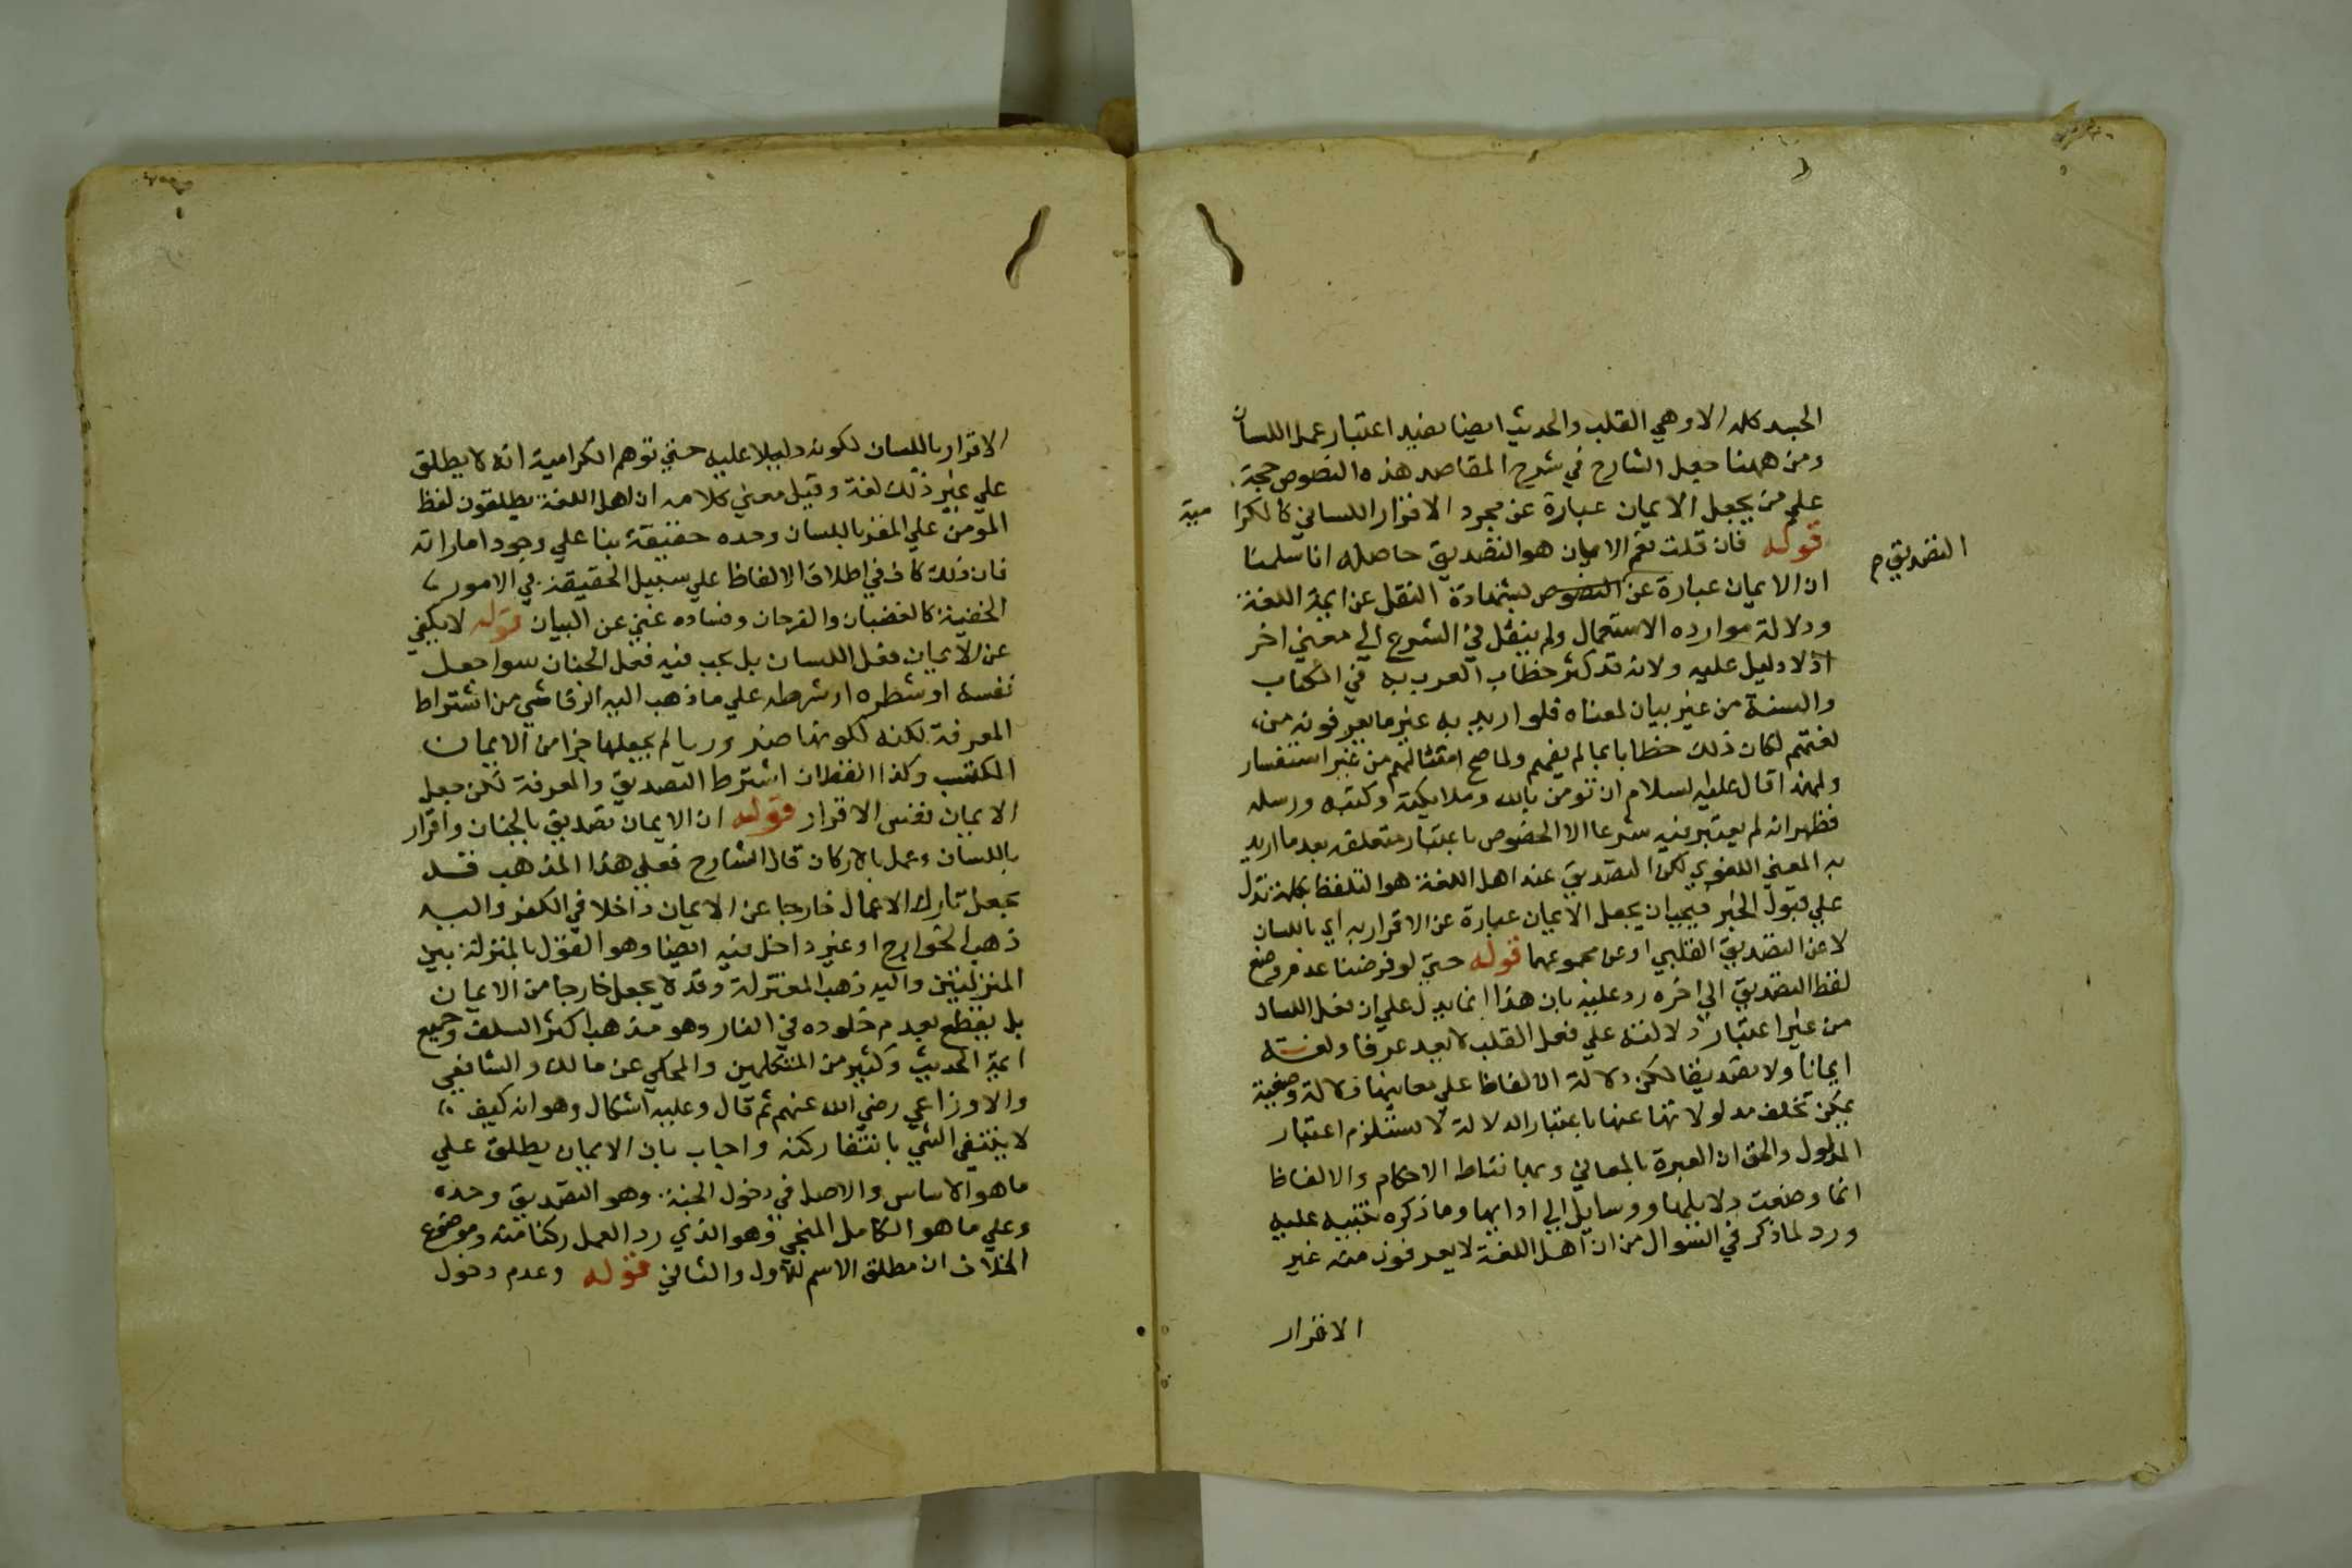 الجسد كله الا وهي القلب والحديث ايضا يفيد اعتبار عمل اللسان
ومن ههنا جعل الشارح في شرح المقاصد هذه النصوص حجة
علي من يجعل الايمان عبارة عن مجرد الاقرار اللساني كالكرا مية
قوله فان قلت نعم الايمان هو التصديق حاصله انا سلمنا
التصديق م
ان الايمان عبارة عن النصوص بشهادة النقل عن ايمة اللغة
ودلالة موارده الاستعمال ولم ينقل في الشرع الي معني اخر
اذ لا دليل عليه ولانه قد كثر خطاب العرب به في الكتاب
والسنة من غير بيان لمعناه فلو اريد به غير ما يعرفونه من
لغتهم لكان ذلك خطابا بما لم يفهم ولما صح امتثالهم من غير استفسار
ولهذا قال عليه السلام ان تومن بالله وملايكته وكتبه ورسله
فظهر انه لم يعتبر فيه شرعا الا الخصوص باعتبار متعلقه بعد ما اريد
به المعني اللغوي لكن التصديق عند اهل اللغة هو التلفظ بكلمة تدل
علي قبول الخبر فيجب ان يجعل الايمان عبارة عن الاقرار به اي باللسان
لا عن التصديق القلبي او عن مجموعهما قوله حتي لو فرضنا عدم وضع
لفظ التصديق الي اخره رد عليه بان هذا انما يدل علي ان فعل اللسان
من غير اعتبار دلالته علي فعل القلب لا يعد عرفا ولغة
ايمانا ولا تصديقا لكن دلالة الالفاظ علي معانيها دلالة وضعية
يمكن تخلف مدلولاتها عنها باعتبار الدلالة لا يستلزم اعتبار
المدلول والحق ان العبرة بالمعاني وبها نناط الاحكام والالفاظ
انما وضعت دلايلها ووسايل الي ادايها وما ذكره تنبيه عليه
ورد لما ذكر في السوال من ان اهل اللغة لا يعرفون منه غير
الاقرار
الاقرار باللسان لكونه دليلا عليه حتي توهم الكرامية انه لا يطلق
علي غير ذلك لغة وقيل معني كلامه ان اهل اللغة يطلقون لفظ
المومن علي المقر باللسان وحده حقيقة بنا علي وجود اماراته
فان ذلك كاف في اطلاق الالفاظ علي سبيل الحقيقة في الامور
الخفية كالغضبان والفرحان وفساده غني عن البيان قوله لا يكفي
عن الايمان فعل اللسان بل يجب فيه فعل الجنان سوا جعل
نفسه او شطره او شرطه علي ما ذهب اليه الرقاشي من اشتراط
المعرفة لكنه لكونها ضروريا لم يجعلها جزا من الايمان
المكتسب وكذا القطان اشترط التصديق والمعرفة لكن جعل
الايمان نفس الاقرار قوله ان الايمان تصديق بالجنان واقرار
باللسان وعمل بالاركان قال الشارح فعلي هذا المذهب قد
يجعل تارك الاعمال خارجا عن الايمان داخلا في الكفر واليه
ذهب الخوارج او غير داخل فيه ايضا وهو القول بالمنزلة بين
المنزلتين واليه ذهب المعتزلة وقد لا يجعل خارجا من الايمان
بل يقطع بعدم خلوده في النار وهو مذهب اكثر السلف وجميع
ايمة الحديث وكثير من المتكلمين والمحكي عن مالك والشافعي
والاوزاعي رضي الله عنهم ثم قال وعليه اشكال وهو انه كيف
لا ينتفي الشي بانتفا ركنه واجاب بان الايمان يطلق علي
ما هو الاساس والاصل في دخول الجنة وهو التصديق وحده
وعلي ما هو الكامل المنجي وهو الذي رد العمل ركنا منه وموضوع
الخلاف ان مطلق الاسم للاول والثاني قوله وعدم دخول